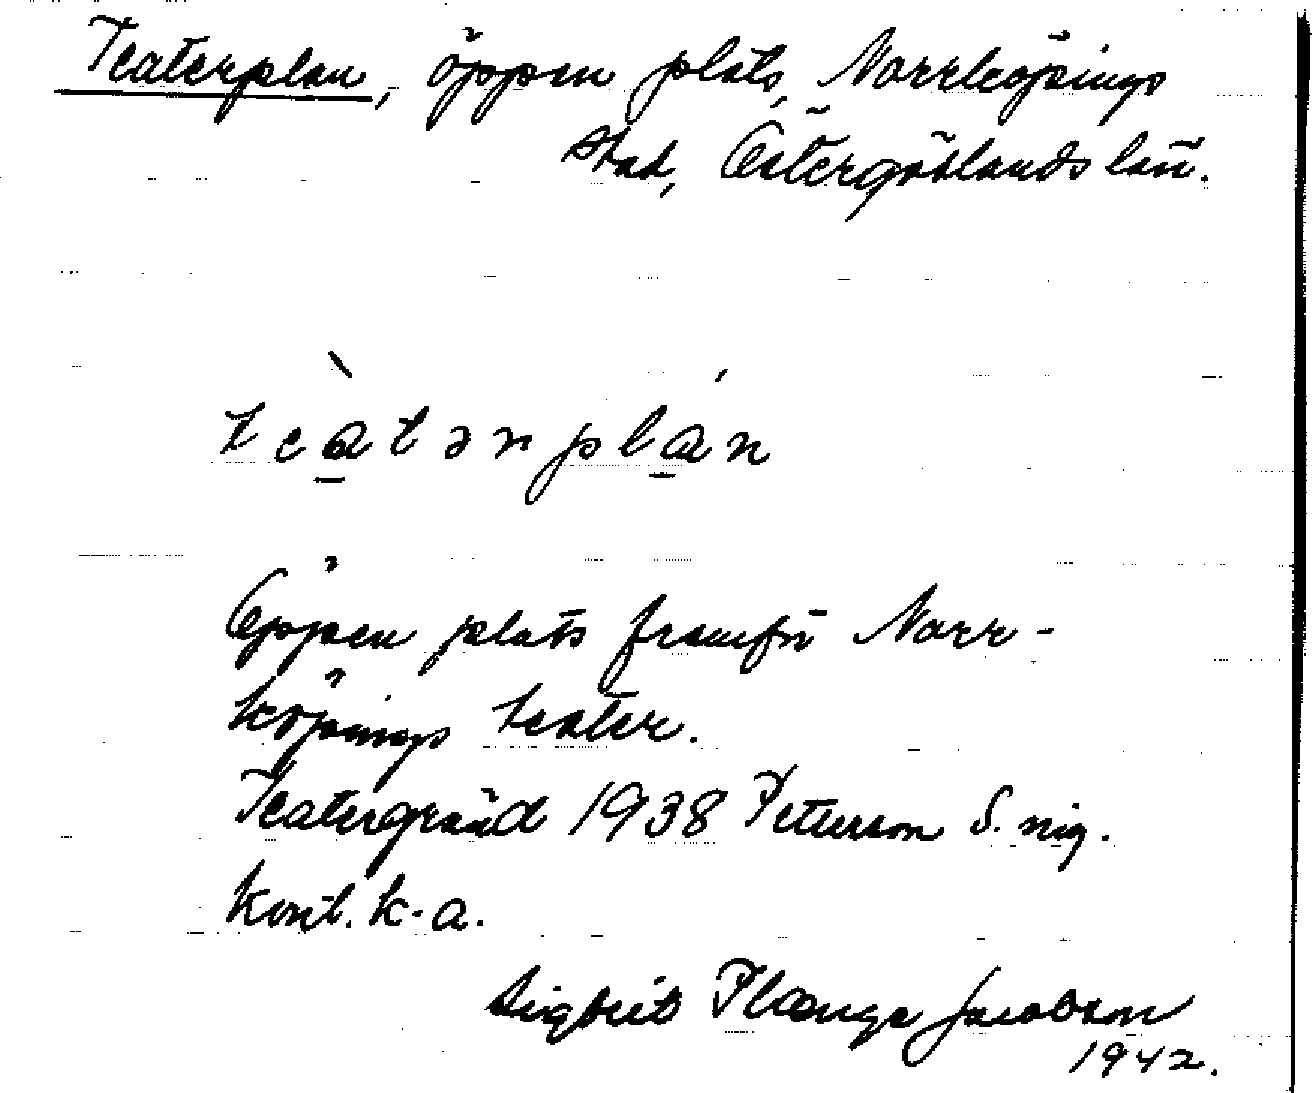 Teaterplan, öppen plats, Norrköpings
stad, Östergötlands län.
teàtərplán
Öppen plats framför Norr-
köpings teater.
Teatergränd 1938 Petterson S. nig.
Kont. k-a.
Sigbrit Plænge Jacobson
1942.